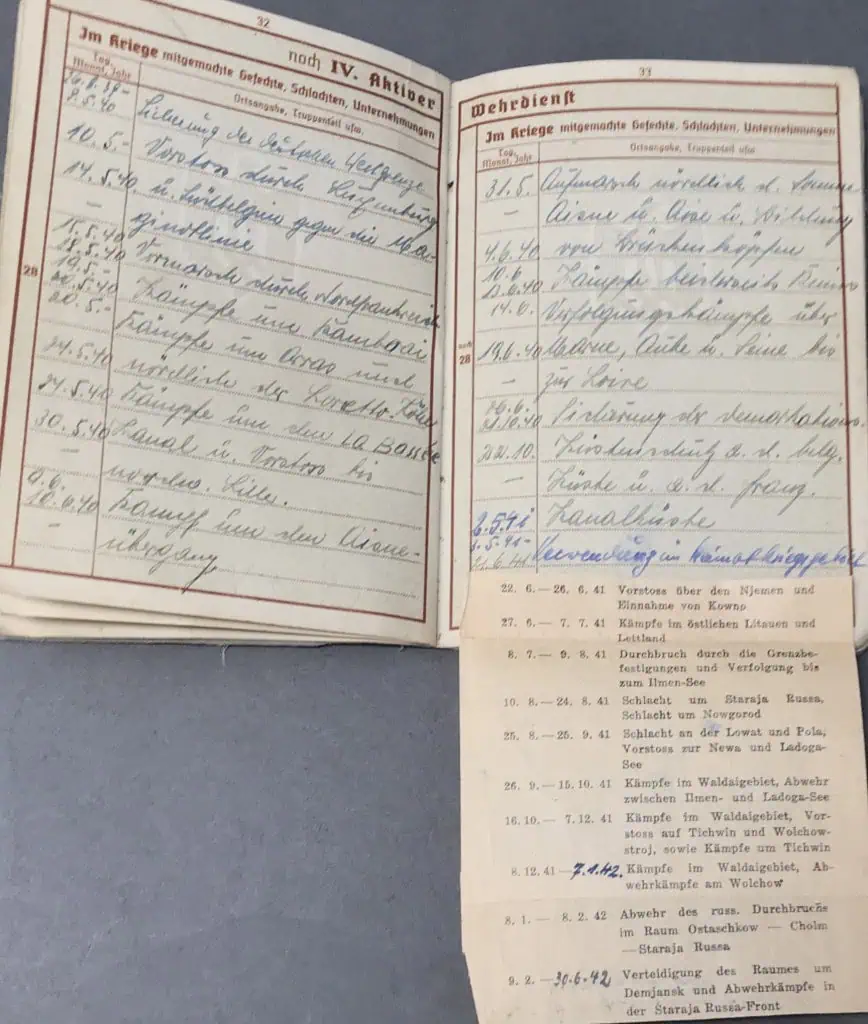 32
noch IV. Aktiver
Im Kriege mitgemachte Gefechte, Schlachten, Unternehmungen
Tag, Monat, Jahr
Ortsangabe, Truppenteil usw.
26.8.39-
9.5.40 Sicherung der deutschen Westgrenze
10.5.- Vorstoss durch Luxemburg
14.5.40 u. Südbelgien gegen die Ma-
- ginotlinie
15.5.40
18.5.40 Vormarsch durch Nordfrankreich
19.5.-
20.5.40 Kämpfe um Kambrai
20.5.- Kämpfe um Arras und
24.5.40 nördlich der Loretto-Höhe
24.5.40 Kämpfe um den La Bassée
30.5.40 Kanal u. Vorstoss bis
- nordw. Lille.
9.6.
10.6.40 Kampf um den Aisne-
- übergang
28
33
Wehrdienst
Im Kriege mitgemachte Gefechte, Schlachten, Unternehmungen
Tag, Monat, Jahr
Ortsangabe, Truppenteil usw.
31.5. Aufmarsch nördlich d. Somme
- Aisne u. Oise u. Bildung
4.6.40 von Brückenköpfen
10.6
13.6.40 Kämpfe beiderseits Reims
14.6. Verfolgungskämpfe über
19.6.40 Marne, Aube u. Seine bis
- zur Loire
noch 28
21.10.40 Sicherung der Demarkations.
22.10. Küstenschutz a. d. belg.
- Küste u. a. d. franz.
2.5.41 Kanalküste
3.5.41-
21.6.41 Verwendung im Heimatkriegsgebiet
22. 6.—26. 6. 41 Vorstoss über den Njemen und
Einnahme von Kowno
27. 6.— 7. 7. 41 Kämpfe im östlichen Litauen und
Lettland
8. 7.— 9. 8. 41 Durchbruch durch die Grenzbe-
festigungen und Verfolgung bis
zum Ilmen-See
10. 8.—24. 8. 41 Schlacht um Staraja Russa,
Schlacht um Nowgorod
25. 8.—25. 9. 41 Schlacht an der Lowat und Pola,
Vorstoss zur Newa und Ladoga-
See
26. 9.—15. 10. 41 Kämpfe im Waldaigebiet, Abwehr
zwischen Ilmen- und Ladoga-See
16. 10.— 7. 12. 41 Kämpfe im Waldaigebiet, Vor-
stoss auf Tichwin und Wolchow-
stroj, sowie Kämpfe um Tichwin
8. 12. 41—7.1.42. Kämpfe im Waldaigebiet, Ab-
wehrkämpfe am Wolchow
8. 1.— 8. 2. 42 Abwehr des russ. Durchbruchs
im Raum Ostaschkow — Cholm
—Staraja Russa
9. 2.—30.6.42 Verteidigung des Raumes um
Demjansk und Abwehrkämpfe in
der Staraja Russa-Front